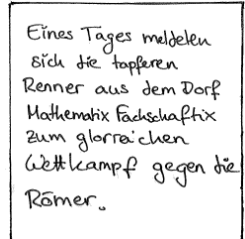 Eines Tages meldeten
sich die tapferen
Renner aus dem Dorf
Mathematix Fachschaftix
zum glorreichen
Wettkampf gegen die
Römer.